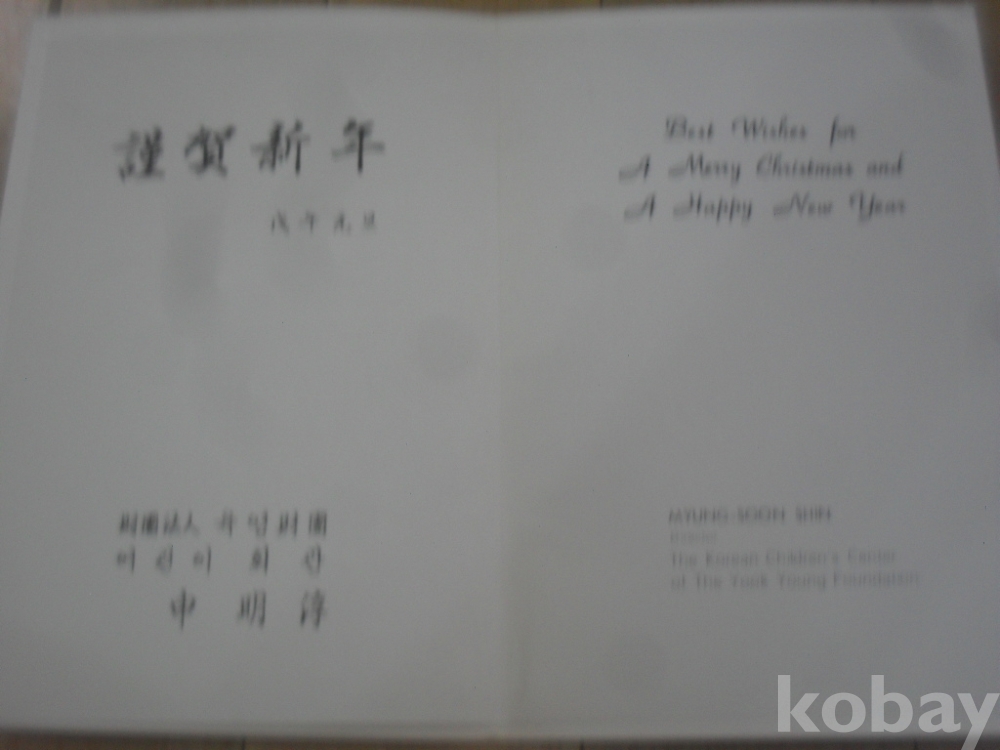 謹賀新年
戊午元旦
財團法人 육영財團
어린이 회관
申明淳
Best Wishes for
A Merry Christmas and
A Happy New Year
MYUNG-SOON SHIN
The Korean Children's Center
of The Yook Young Foundation
kobay